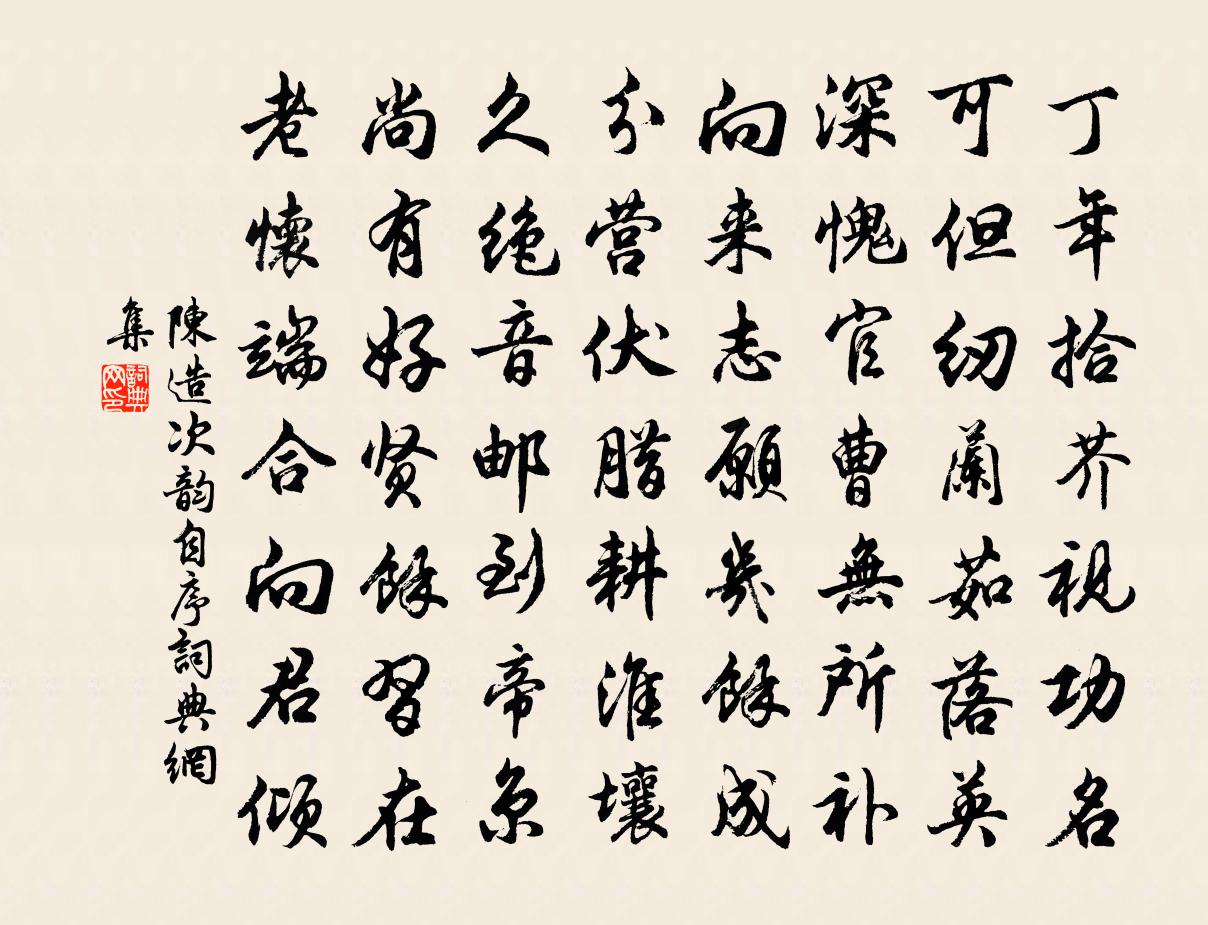 丁年拾芥视功名
可但纫蘭茹落英
深愧官曹無所补
向来志願幾餘成
分营伏腊耕淮壤
久绝音邮到帝京
尚有好贤餘習在
老懷端合向君倾
陳造次韵自序詞典網
集
詞典网印